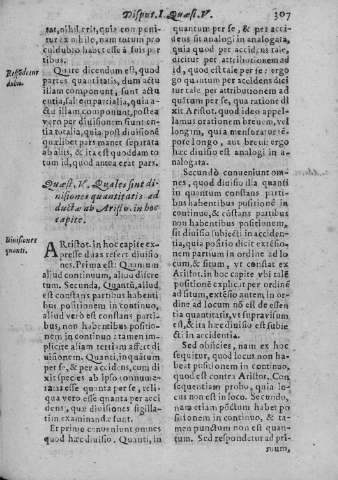 Disput. I. Quæst. V.
307
tat, nihil erit, quia con poni-
tur ex nihilo, nam totum pro
culdubio habet esse à suis par
tibus.
Respōdetur
dubio.
Quare dicendum est, quod
partes quantitatis, dum actu
illam componunt, sunt actu
entia, saltem partialia, quia a-
ctu illam componunt, postea
vero per divisionem sunt en-
tia totalia, quia post divisionē
quælibet pars manet separata
ab aliis, & ita est quoddam to
tum id, quod antea erat pars.
Quæst. V. Quales sint di-
uisiones quantitatis ad
ductæ ab Aristo. in hoc
capite.
Diuisiones
quanti.
ARistot. in hoc capite ex-
presse duas refert diuisio-
nes. Prima est: Quantum
aliud continuum, aliud discre
tum. Secunda, Quantū, aliud
est constans partibus habenti
bus positionem in continuo,
aliud verò est constans parti-
bus, non habentibus positio-
nem in continuo tamen im-
plicite aliam tertiam affert di
uisionem. Quanti, inquātum
per se, & per accidens, cum di
xit species ab ipso connume-
ratas esse quanta per se, reli-
qua verò esse quanta per acci
dens, quæ diuisiones sigilla-
tim examinandæ sunt.
Et primo conueniunt omnes
quod hæc diuisio. Quanti, in
quantum per se, & per acci-
dens sit analogi in analogata,
quia quod per accidens tale,
dicitur per attributionem ad
id, quod est tale per se: ergo
quantum per accidens dice-
tur, per attributionem ad
quantum per se, qua ratione di
xit Aristot. quod ideo appel-
lamus orationem breuem, vel
longum, quia mensoratur tē-
pore longo, aut breui: ergo
hæc diuisio est analogi in a-
nalogata.
Secundò conueniunt om-
nes, quod diuisio illa quanti
in quantum constans parti-
bus habentibus positionem in
continuo, & cōstans partibus
non habentibus positionem,
sit diuisio subiecti in acciden-
tia, quia positio dicit extēsio-
nem partium in ordine ad lo-
cum, & situm, vt constat ex
Aristot. in hoc capite vbi talē
positionē explicat per ordinē
ad situm, extēsio autem in or
dine ad locum nō est de essen
tia quantitatis, vt supra visum
est, & ita hæc diuisio est subie
cti in accidentia.
Sed obiicies, nam ex hoc
sequitur, quod locus non ha-
bet positionem in continuo,
quod est contra Aristot. Con
sequentiam probo, quia lo-
cus non est in loco. Secundo,
nam etiam punctum habet po
sitionem in continuo, & non
est constans partibus, vt quan
tum. Sed respondetur ad pri-
mum,